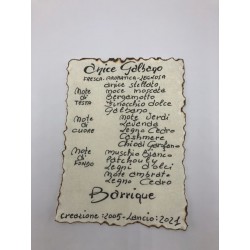 Anice Galbano
FRESCA - AROMATICA - LEGNOSA
anice stellato
Note noce moscata
DI Bergamotto
TESTA Finocchio dolce
Galbano
Note Note Verdi
DI Lavanda
CUORE Legno Cedro
Cashmere
Chiodi Garofano
Note Muschio Bianco
DI Patchouly
FONDO Legni Dolci
Note ambrate
Legno Cedro
Barrique
Creazione: 2005 - Lancio: 2021